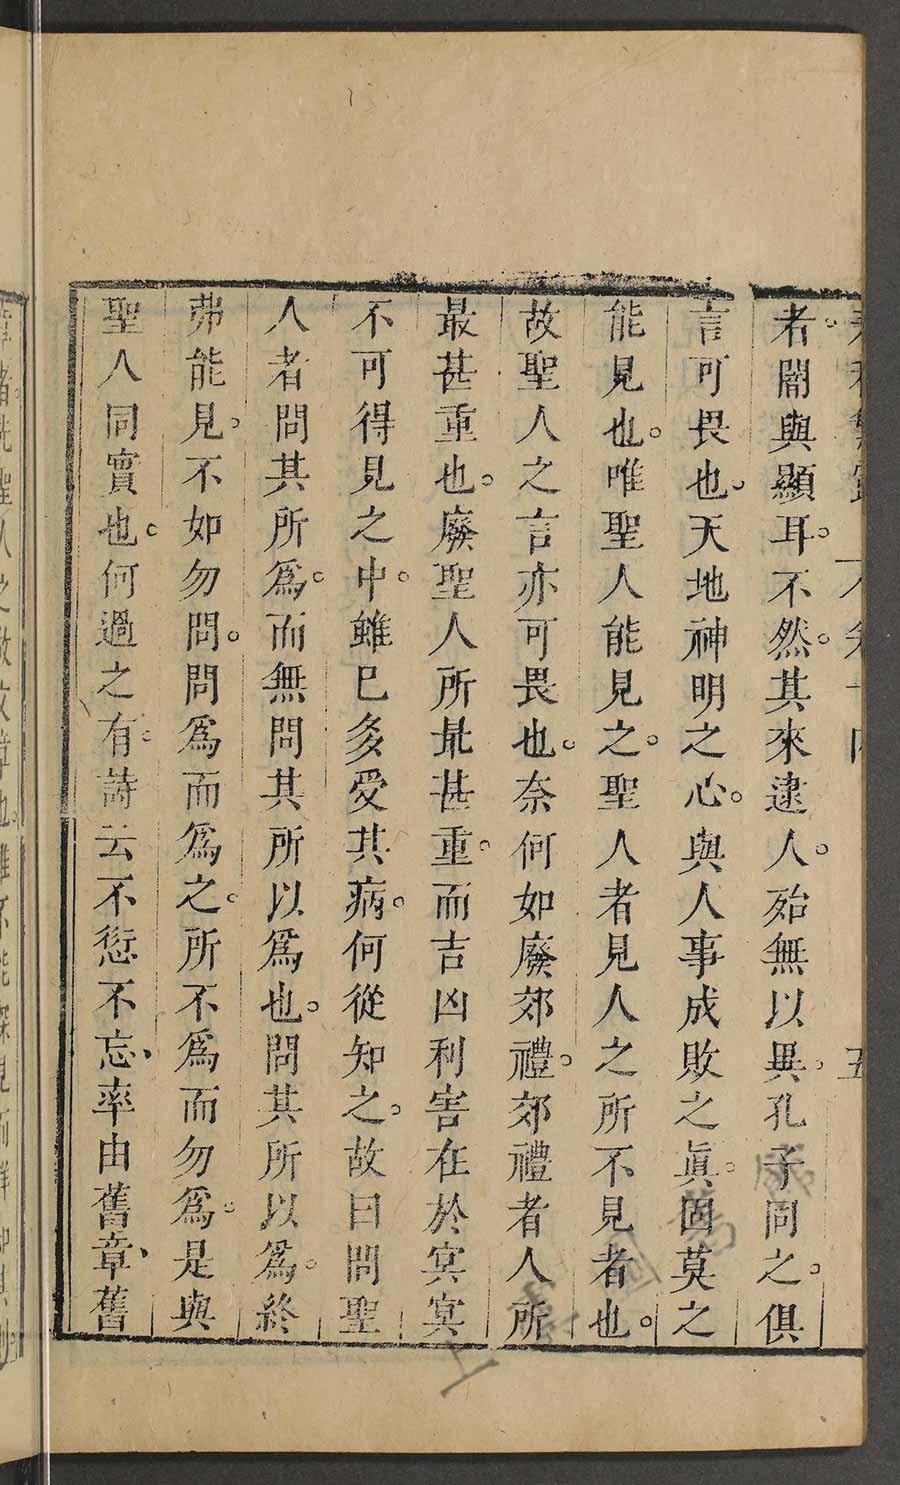 者闇與顯耳不然其來逮人殆無以異孔子同之俱
言可畏也天地神明之心與人事成敗之眞固莫之
能見也唯聖人能見之聖人者見人之所不見者也
故聖人之言亦可畏也奈何如廢郊禮郊禮者人所
最甚重也廢聖人所最甚重而吉凶利害在於冥冥
不可得見之中雖已多受其病何從知之故曰問聖
人者問其所爲而無問其所以爲也問其所以爲終
弗能見不如勿問問爲而爲之所不爲而勿爲是與
聖人同實也何過之有詩云不愆不忘率由舊章舊